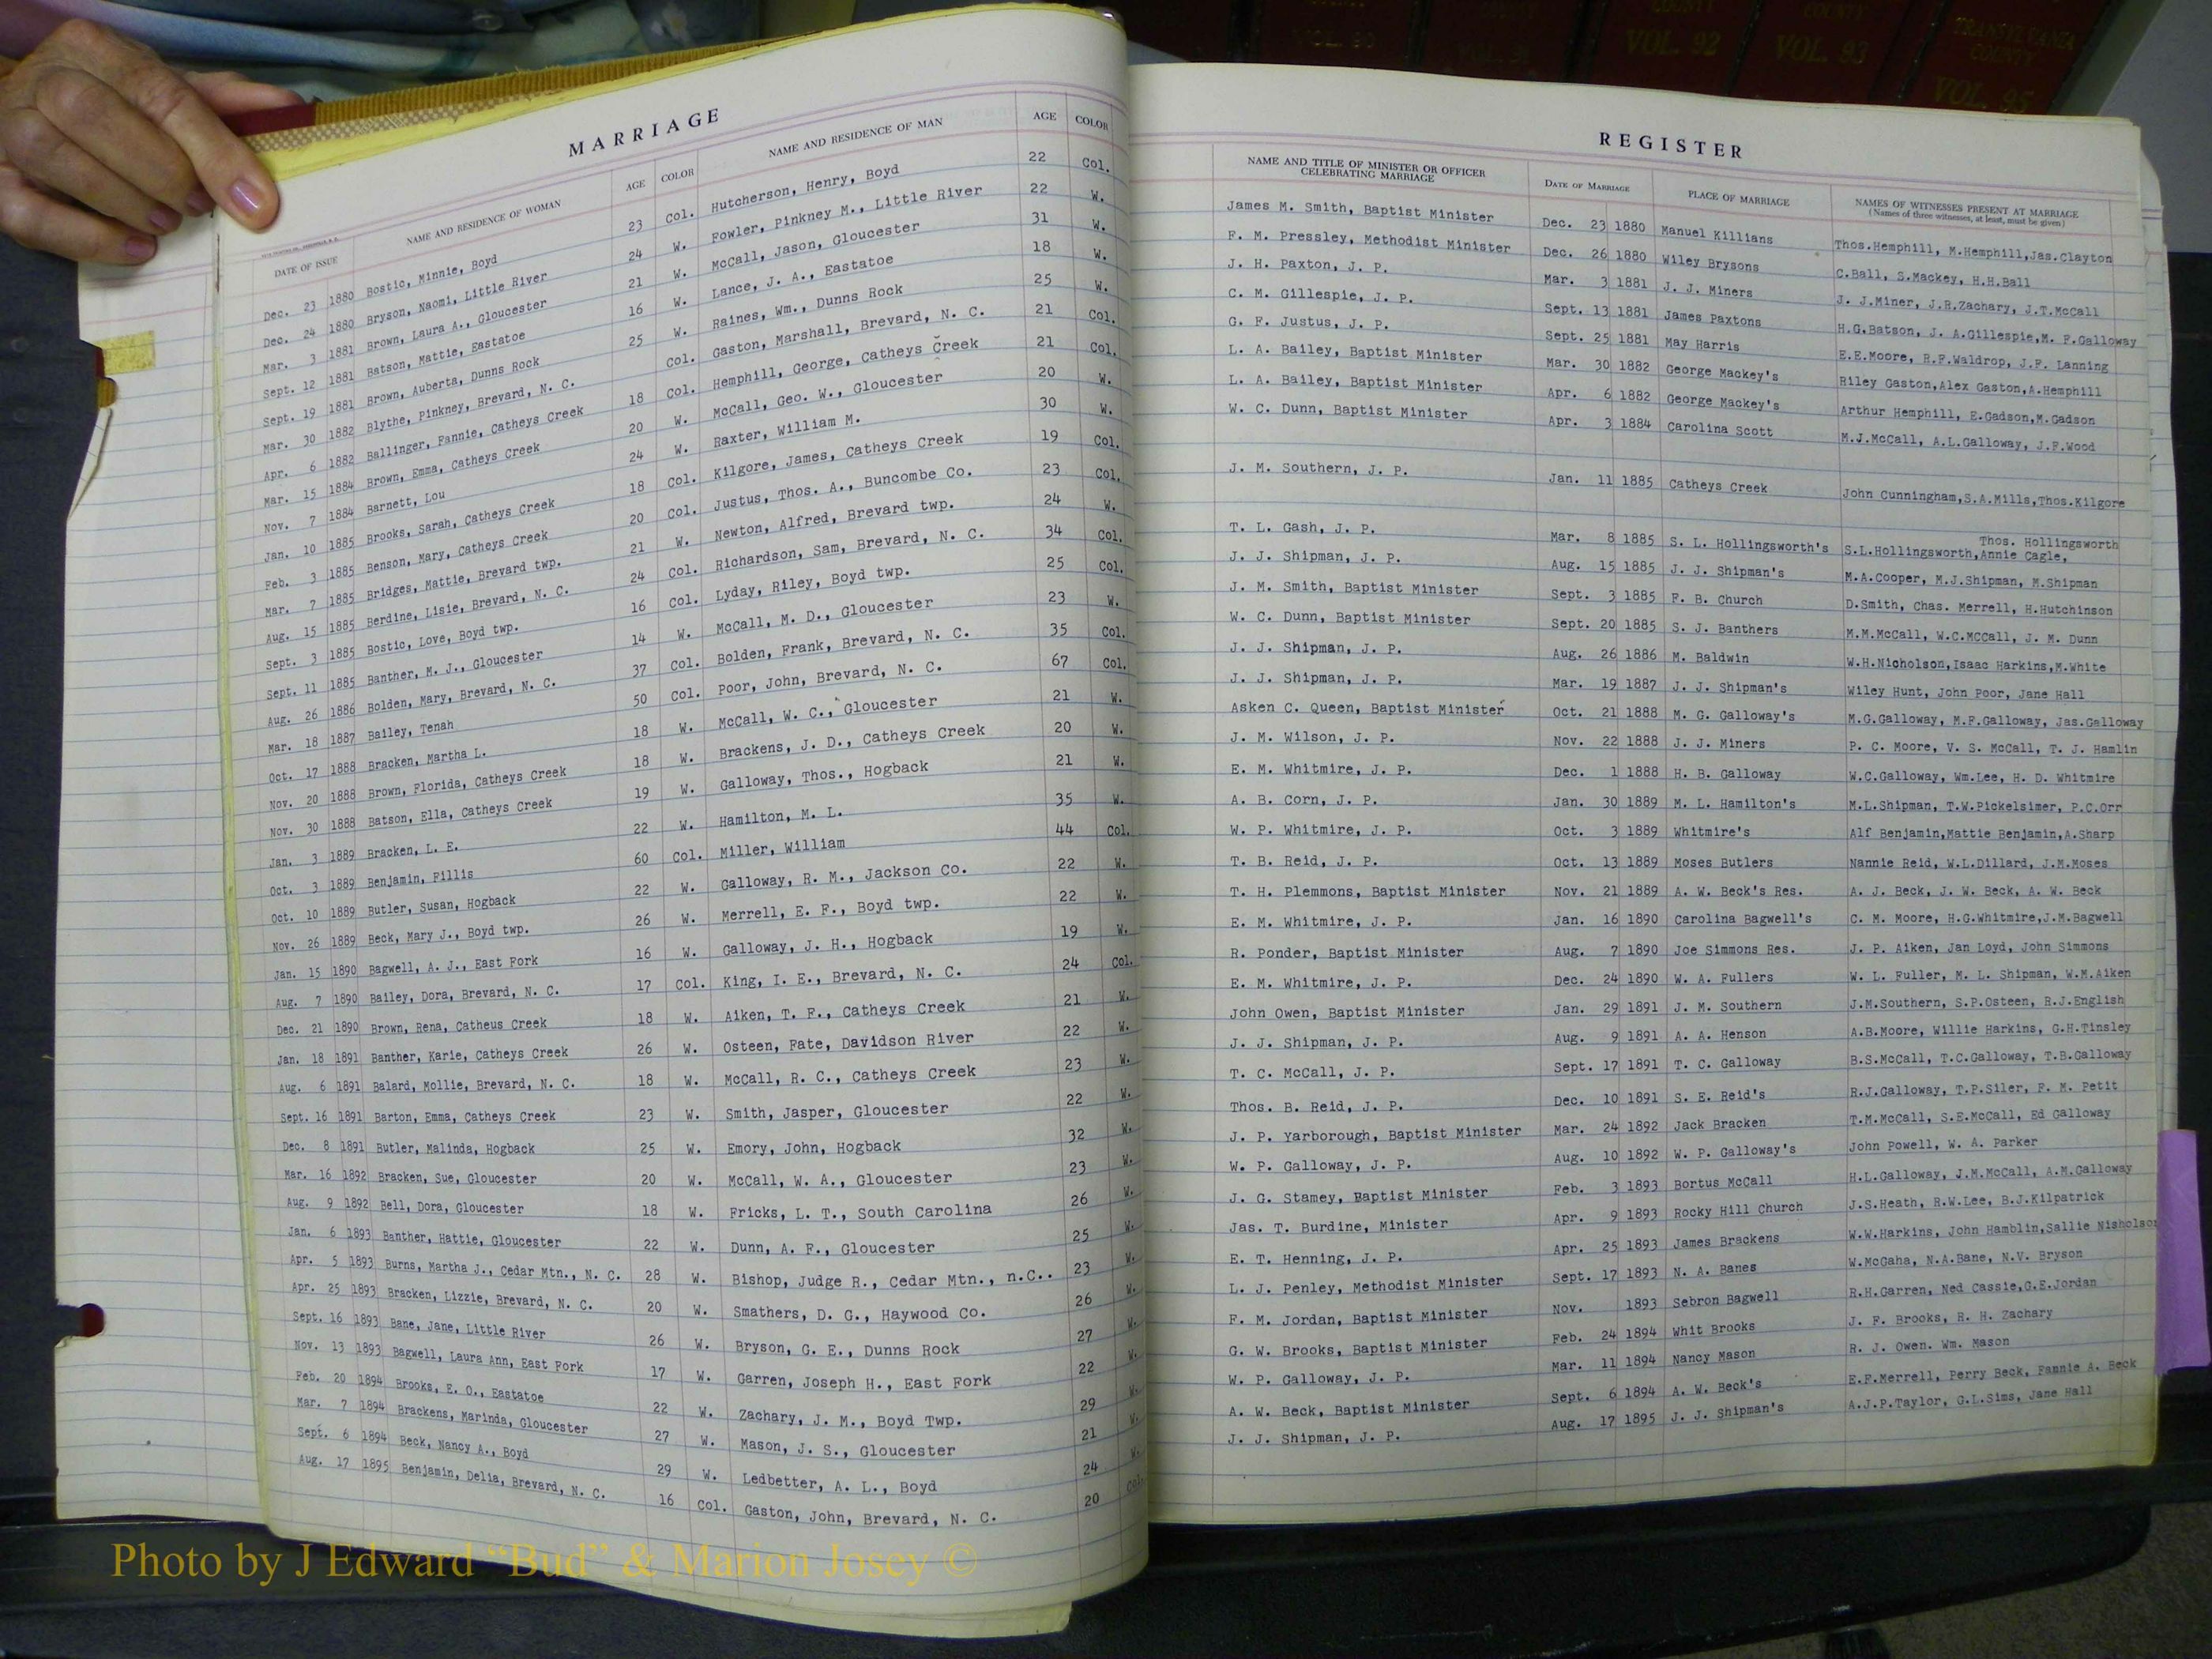 MARRIAGE
DATE OF ISSUE NAME AND RESIDENCE OF WOMAN AGE COLOR NAME AND RESIDENCE OF MAN AGE COLOR
Dec. 23 1880 Bostic, Minnie, Boyd 23 Col. Hutcherson, Henry, Boyd 22 Col.
Dec. 24 1880 Bryson, Naomi, Little River 24 W. Fowler, Pinkney M., Little River 22 W.
Mar. 3 1881 Brown, Laura A., Gloucester 21 W. McCall, Jason, Gloucester 31 W.
Sept. 12 1881 Batson, Mattie, Eastatoe 16 W. Lance, J. A., Eastatoe 18 W.
Sept. 19 1881 Brown, Auberta, Dunns Rock 25 W. Raines, Wm., Dunns Rock 25 W.
Mar. 30 1882 Blythe, Pinkney, Brevard, N. C. Col. Gaston, Marshall, Brevard, N. C. 21 Col.
Apr. 6 1882 Ballinger, Fannie, Catheys Creek 18 Col. Hemphill, George, Catheys Creek 21 Col.
Mar. 15 1884 Brown, Emma, Catheys Creek 20 W. McCall, Geo. W., Gloucester 20 W.
Nov. 7 1884 Barnett, Lou 24 W. Raxter, William M. 30 W.
Jan. 10 1885 Brooks, Sarah, Catheys Creek 18 Col. Kilgore, James, Catheys Creek 19 Col.
Feb. 3 1885 Benson, Mary, Catheys Creek 20 Col. Justus, Thos. A., Buncombe Co. 23 Col.
Mar. 7 1885 Bridges, Mattie, Brevard twp. 21 W. Newton, Alfred, Brevard twp. 24 W.
Aug. 15 1885 Berdine, Lisie, Brevard, N. C. 24 Col. Richardson, Sam, Brevard, N. C. 34 Col.
Sept. 3 1885 Bostic, Love, Boyd twp. 16 Col. Lyday, Riley, Boyd twp. 25 Col.
Sept. 11 1885 Banther, M. J., Gloucester 14 W. McCall, M. D., Gloucester 23 W.
Aug. 26 1886 Bolden, Mary, Brevard, N. C. 37 Col. Bolden, Frank, Brevard, N. C. 35 Col.
Mar. 18 1887 Bailey, Tenah 50 Col. Poor, John, Brevard, N. C. 67 Col.
Oct. 17 1888 Bracken, Martha L. 18 W. McCall, W. C., Gloucester 21 W.
Nov. 20 1888 Brown, Florida, Catheys Creek 18 W. Brackens, J. D., Catheys Creek 20 W.
Nov. 30 1888 Batson, Ella, Catheys Creek 19 W. Galloway, Thos., Hogback 21 W.
Jan. 3 1889 Bracken, L. E. 22 W. Hamilton, M. L. 35 W.
Oct. 3 1889 Benjamin, Fillis 60 Col. Miller, William 44 Col.
Oct. 10 1889 Butler, Susan, Hogback 22 W. Galloway, R. M., Jackson Co. 22 W.
Nov. 26 1889 Beck, Mary J., Boyd twp. 26 W. Merrell, E. F., Boyd twp. 22 W.
Jan. 15 1890 Bagwell, A. J., East Fork 16 W. Galloway, J. H., Hogback 19 W.
Aug. 7 1890 Bailey, Dora, Brevard, N. C. 17 Col. King, I. E., Brevard, N. C. 24 Col.
Dec. 21 1890 Brown, Rena, Catheus Creek 18 W. Aiken, T. F., Catheys Creek 21 W.
Jan. 18 1891 Banther, Karie, Catheys Creek 26 W. Osteen, Fate, Davidson River 22 W.
Aug. 6 1891 Balard, Mollie, Brevard, N. C. 18 W. McCall, R. C., Catheys Creek 23 W.
Sept. 16 1891 Barton, Emma, Catheys Creek 23 W. Smith, Jasper, Gloucester 22 W.
Dec. 8 1891 Butler, Malinda, Hogback 25 W. Emory, John, Hogback 32 W.
Mar. 16 1892 Bracken, Sue, Gloucester 20 W. McCall, W. A., Gloucester 23 W.
Aug. 9 1892 Bell, Dora, Gloucester 18 W. Fricks, L. T., South Carolina 26 W.
Jan. 6 1893 Banther, Hattie, Gloucester 22 W. Dunn, A. F., Gloucester 25 W.
Apr. 5 1893 Burns, Martha J., Cedar Mtn., N. C. 28 W. Bishop, Judge R., Cedar Mtn., n.C.. 23 W.
Apr. 25 1893 Bracken, Lizzie, Brevard, N. C. 20 W. Smathers, D. G., Haywood Co. 26 W.
Sept. 16 1893 Bane, Jane, Little River 26 W. Bryson, G. E., Dunns Rock 27 W.
Nov. 13 1893 Bagwell, Laura Ann, East Fork 17 W. Garren, Joseph H., East Fork 22 W.
Feb. 20 1894 Brooks, E. O., Eastatoe 22 W. Zachary, J. M., Boyd Twp. 29 W.
Mar. 7 1894 Brackens, Marinda, Gloucester 27 W. Mason, J. S., Gloucester 21 W.
Sept. 6 1894 Beck, Nancy A., Boyd 29 W. Ledbetter, A. L., Boyd 24 W.
Aug. 17 1895 Benjamin, Delia, Brevard, N. C. 16 Col. Gaston, John, Brevard, N. C. 20 Col.
REGISTER
NAME AND TITLE OF MINISTER OR OFFICER CELEBRATING MARRIAGE DATE OF MARRIAGE PLACE OF MARRIAGE NAMES OF WITNESSES PRESENT AT MARRIAGE
(Names of three witnesses, at least, must be given)
James M. Smith, Baptist Minister Dec. 23 1880 Manuel Killians Thos.Hemphill, M.Hemphill,Jas.Clayton
F. M. Pressley, Methodist Minister Dec. 26 1880 Wiley Brysons C.Ball, S.Mackey, H.H.Ball
J. H. Paxton, J. P. Mar. 3 1881 J. J. Miners J. J.Miner, J.R.Zachary, J.T.McCall
C. M. Gillespie, J. P. Sept. 13 1881 James Paxtons H.G.Batson, J. A.Gillespie,M. F.Galloway
G. F. Justus, J. P. Sept. 25 1881 May Harris E.E.Moore, R.F.Waldrop, J.F. Lanning
L. A. Bailey, Baptist Minister Mar. 30 1882 George Mackey's Riley Gaston,Alex Gaston,A.Hemphill
L. A. Bailey, Baptist Minister Apr. 6 1882 George Mackey's Arthur Hemphill, E.Gadson,M.Gadson
W. C. Dunn, Baptist Minister Apr. 3 1884 Carolina Scott M.J.McCall, A.L.Galloway, J.F.Wood
J. M. Southern, J. P. Jan. 11 1885 Catheys Creek John Cunningham,S.A.Mills,Thos.Kilgore
Thos. Hollingsworth
T. L. Gash, J. P. Mar. 8 1885 S. L. Hollingsworth's S.L.Hollingsworth,Annie Cagle,
J. J. Shipman, J. P. Aug. 15 1885 J. J. Shipman's M.A.Cooper, M.J.Shipman, M.Shipman
J. M. Smith, Baptist Minister Sept. 3 1885 F. B. Church D.Smith, Chas. Merrell, H.Hutchinson
W. C. Dunn, Baptist Minister Sept. 20 1885 S. J. Banthers M.M.McCall, W.C.MCCall, J. M. Dunn
J. J. Shipman, J. P. Aug. 26 1886 M. Baldwin W.H.Nicholson,Isaac Harkins,M.White
J. J. Shipman, J. P. Mar. 19 1887 J. J. Shipman's Wiley Hunt, John Poor, Jane Hall
Asken C. Queen, Baptist Minister Oct. 21 1888 M. G. Galloway's M.G.Galloway, M.F.Galloway, Jas.Galloway
J. M. Wilson, J. P. Nov. 22 1888 J. J. Miners P. C. Moore, V. S. McCall, T. J. Hamlin
E. M. Whitmire, J. P. Dec. 1 1888 H. B. Galloway W.C.Galloway, Wm.Lee, H. D. Whitmire
A. B. Corn, J. P. Jan. 30 1889 M. L. Hamilton's M.L.Shipman, T.W.Pickelsimer, P.C.Orr
W. P. Whitmire, J. P. Oct. 3 1889 Whitmire's Alf Benjamin,Mattie Benjamin,A.Sharp
T. B. Reid, J. P. Oct. 13 1889 Moses Butlers Nannie Reid, W.L.Dillard, J.M.Moses
T. H. Plemmons, Baptist Minister Nov. 21 1889 A. W. Beck's Res. A. J. Beck, J. W. Beck, A. W. Beck
E. M. Whitmire, J. P. Jan. 16 1890 Carolina Bagwell's C. M. Moore, H.G.Whitmire,J.M.Bagwell
R. Ponder, Baptist Minister Aug. 7 1890 Joe Simmons Res. J. P. Aiken, Jan Loyd, John Simmons
E. M. Whitmire, J. P. Dec. 24 1890 W. A. Fullers W. L. Fuller, M. L. Shipman, W.M.Aiken
John Owen, Baptist Minister Jan. 29 1891 J. M. Southern J.M.Southern, S.P.Osteen, R.J.English
J. J. Shipman, J. P. Aug. 9 1891 A. A. Henson A.B.Moore, Willie Harkins, G.H.Tinsley
T. C. McCall, J. P. Sept. 17 1891 T. C. Galloway B.S.McCall, T.C.Galloway, T.B.Galloway
Thos. B. Reid, J. P. Dec. 10 1891 S. E. Reid's R.J.Galloway, T.P.Siler, F. M. Petit
J. P. Yarborough, Baptist Minister Mar. 24 1892 Jack Bracken T.M.McCall, S.E.McCall, Ed Galloway
W. P. Galloway, J. P. Aug. 10 1892 W. P. Galloway's John Powell, W. A. Parker
J. G. Stamey, Baptist Minister Feb. 3 1893 Bortus McCall H.L.Galloway, J.M.McCall, A.M.Galloway
Jas. T. Burdine, Minister Apr. 9 1893 Rocky Hill Church J.S.Heath, R.W.Lee, B.J.Kilpatrick
E. T. Henning, J. P. Apr. 25 1893 James Brackens W.W.Harkins, John Hamblin,Sallie Nisholson
L. J. Penley, Methodist Minister Sept. 17 1893 N. A. Banes W.McGaha, N.A.Bane, N.V. Bryson
F. M. Jordan, Baptist Minister Nov. 1893 Sebron Bagwell R.H.Garren, Ned Cassie,G.E.Jordan
G. W. Brooks, Baptist Minister Feb. 24 1894 Whit Brooks J. F. Brooks, R. H. Zachary
W. P. Galloway, J. P. Mar. 11 1894 Nancy Mason R. J. Owen. Wm. Mason
A. W. Beck, Baptist Minister Sept. 6 1894 A. W. Beck's E.F.Merrell, Perry Beck, Fannie A. Beck
J. J. Shipman, J. P. Aug. 17 1895 J. J. Shipman's A.J.P.Taylor, G.L.Sims, Jane Hall
COUNTY VOL. 92
COUNTY VOL. 93
TRANSYLVANIA COUNTY VOL. 95
Photo by J Edward “Bud” & Marion Josey ©